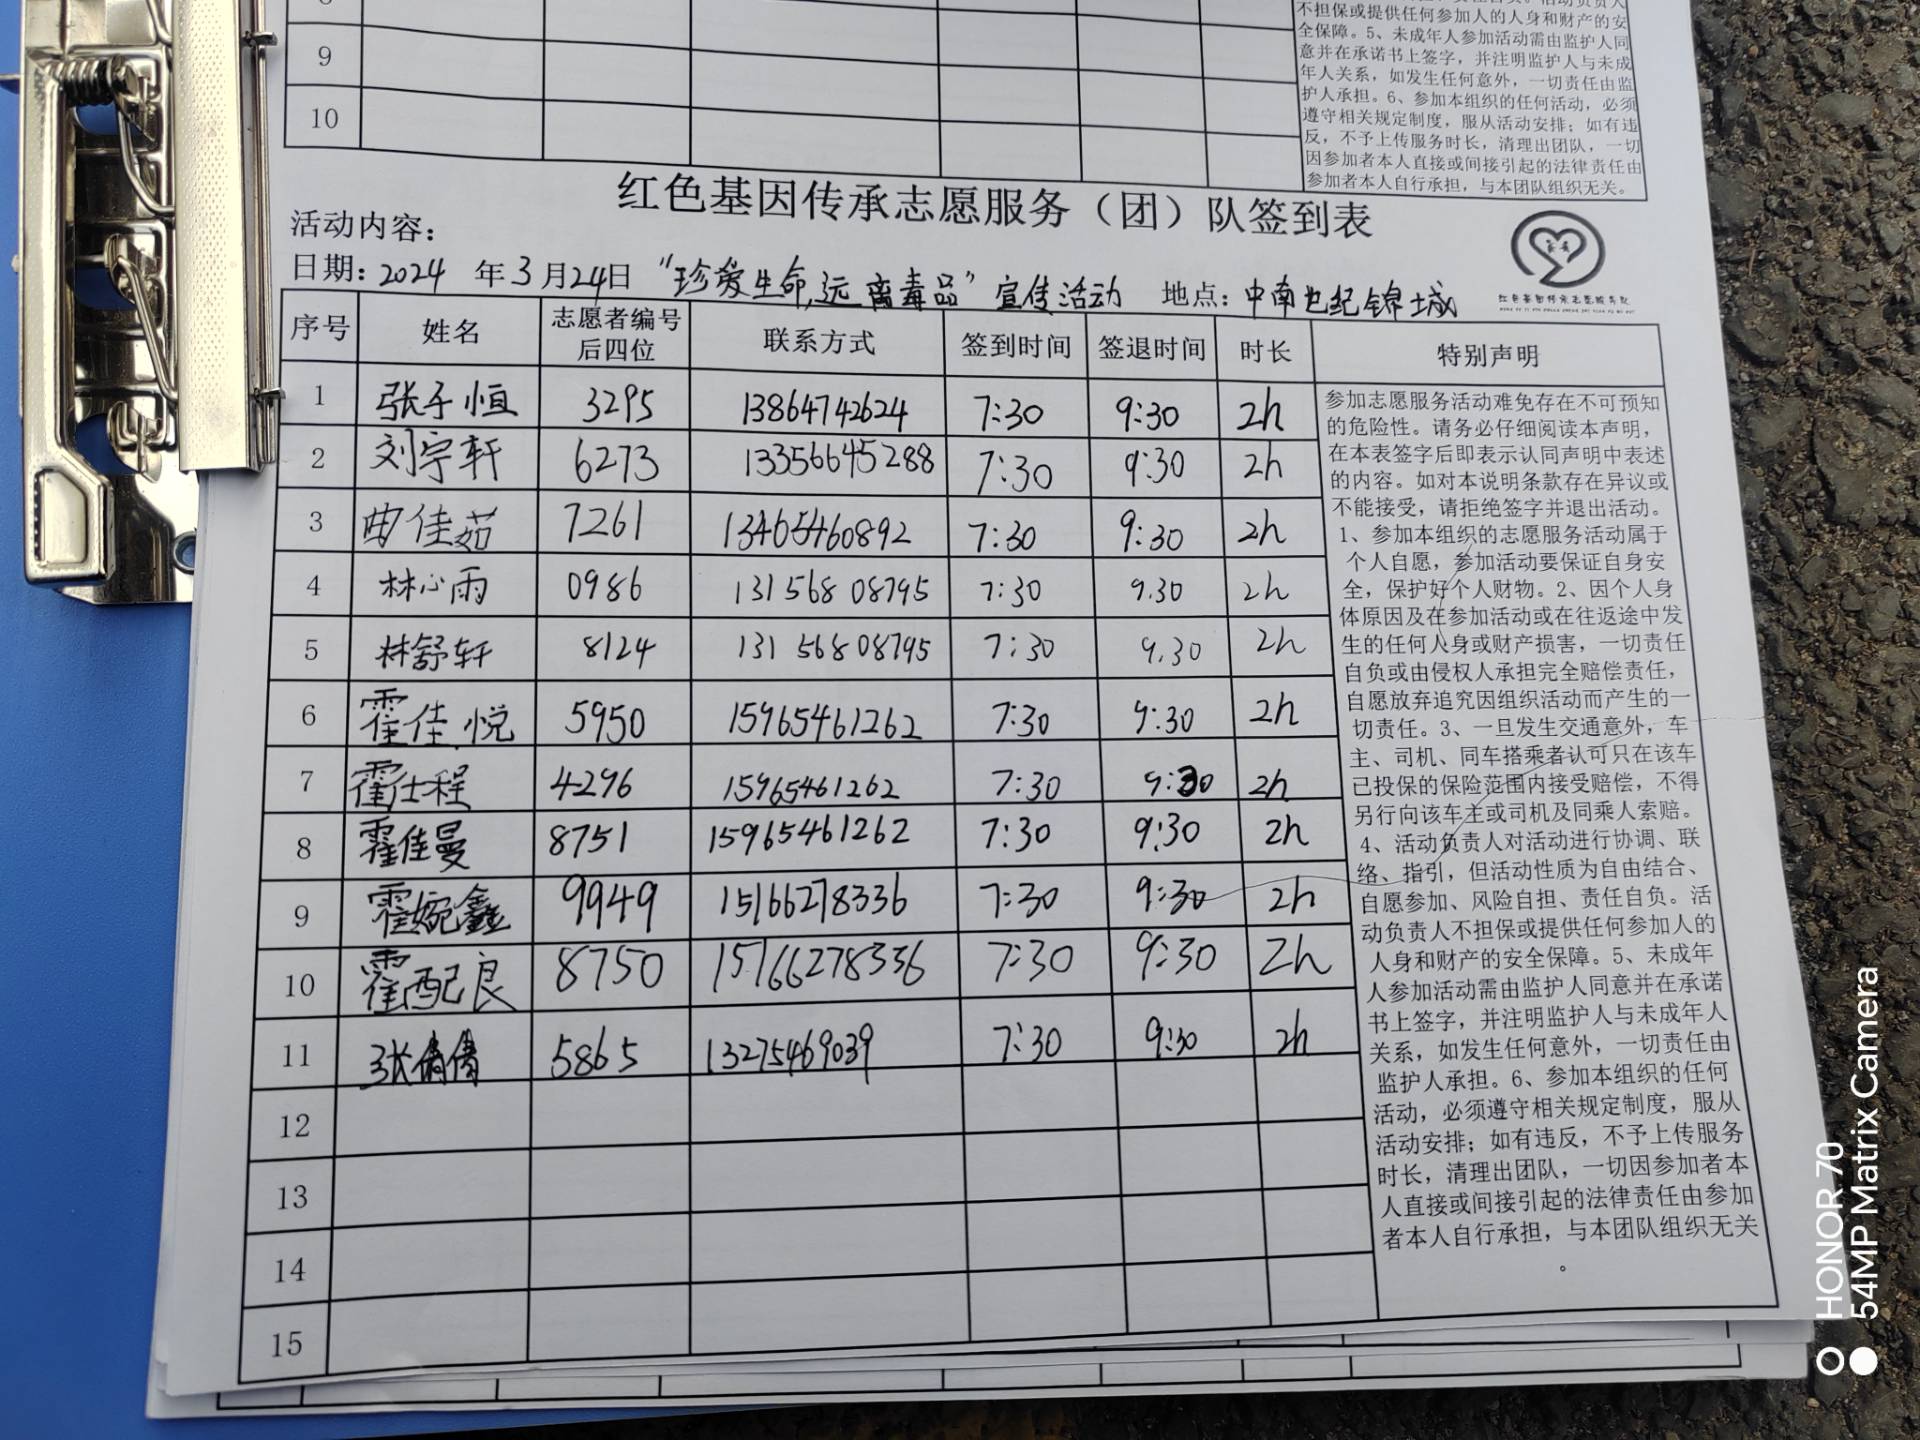 不担保或提供任何参加人的人身和财产的安
全保障。5、未成年人参加活动需由监护人同
意并在承诺书上签字，并注明监护人与未成
年人关系，如发生任何意外，一切责任由监
护人承担。6、参加本组织的任何活动，必须
遵守相关规定制度，服从活动安排；如有违
反，不予上传服务时长，清理出团队，一切
因参加者本人直接或间接引起的法律责任由
参加者本人自行承担，与本团队组织无关。
9
10
红色基因传承志愿服务（团）队签到表
活动内容：
日期：2024 年 3 月 24 日 “珍爱生命，远离毒品”宣传活动 地点：中南世纪锦城
红色基因传承志愿服务队
序号 姓名 志愿者编号后四位 联系方式 签到时间 签退时间 时长 特别声明
1 张子恒 3295 13864742624 7:30 9:30 2h
2 刘宇轩 6273 13356645288 7:30 9:30 2h
3 曲佳茹 7261 13465460892 7:30 9:30 2h
4 林心雨 0986 131 568 08795 7:30 9.30 2h
5 林舒轩 8124 131 568 08795 7:30 9.30 2h
6 霍佳悦 5950 15965461262 7:30 9:30 2h
7 霍仕程 4296 15965461262 7:30 9:30 2h
8 霍佳曼 8751 15965461262 7:30 9:30 2h
9 霍婉鑫 9949 15166278336 7:30 9:30 2h
10 霍配良 8750 15166278336 7:30 9:30 2h
11 张倩倩 5865 13275469039 7:30 9:30 2h
12
13
14
15
参加志愿服务活动难免存在不可预知
的危险性。请务必仔细阅读本声明，
在本表签字后即表示认同声明中表述
的内容。如对本说明条款存在异议或
不能接受，请拒绝签字并退出活动。
1、参加本组织的志愿服务活动属于
个人自愿，参加活动要保证自身安
全，保护好个人财物。2、因个人身
体原因及在参加活动或在往返途中发
生的任何人身或财产损害，一切责任
自负或由侵权人承担完全赔偿责任，
自愿放弃追究因组织活动而产生的一
切责任。3、一旦发生交通意外，车
主、司机、同车搭乘者认可只在该车
已投保的保险范围内接受赔偿，不得
另行向该车主或司机及同乘人索赔。
4、活动负责人对活动进行协调、联
络、指引，但活动性质为自由结合、
自愿参加、风险自担、责任自负。活
动负责人不担保或提供任何参加人的
人身和财产的安全保障。5、未成年
人参加活动需由监护人同意并在承诺
书上签字，并注明监护人与未成年人
关系，如发生任何意外，一切责任由
监护人承担。6、参加本组织的任何
活动，必须遵守相关规定制度，服从
活动安排；如有违反，不予上传服务
时长，清理出团队，一切因参加者本
人直接或间接引起的法律责任由参加
者本人自行承担，与本团队组织无关
。
HONOR 70
54MP Matrix Camera